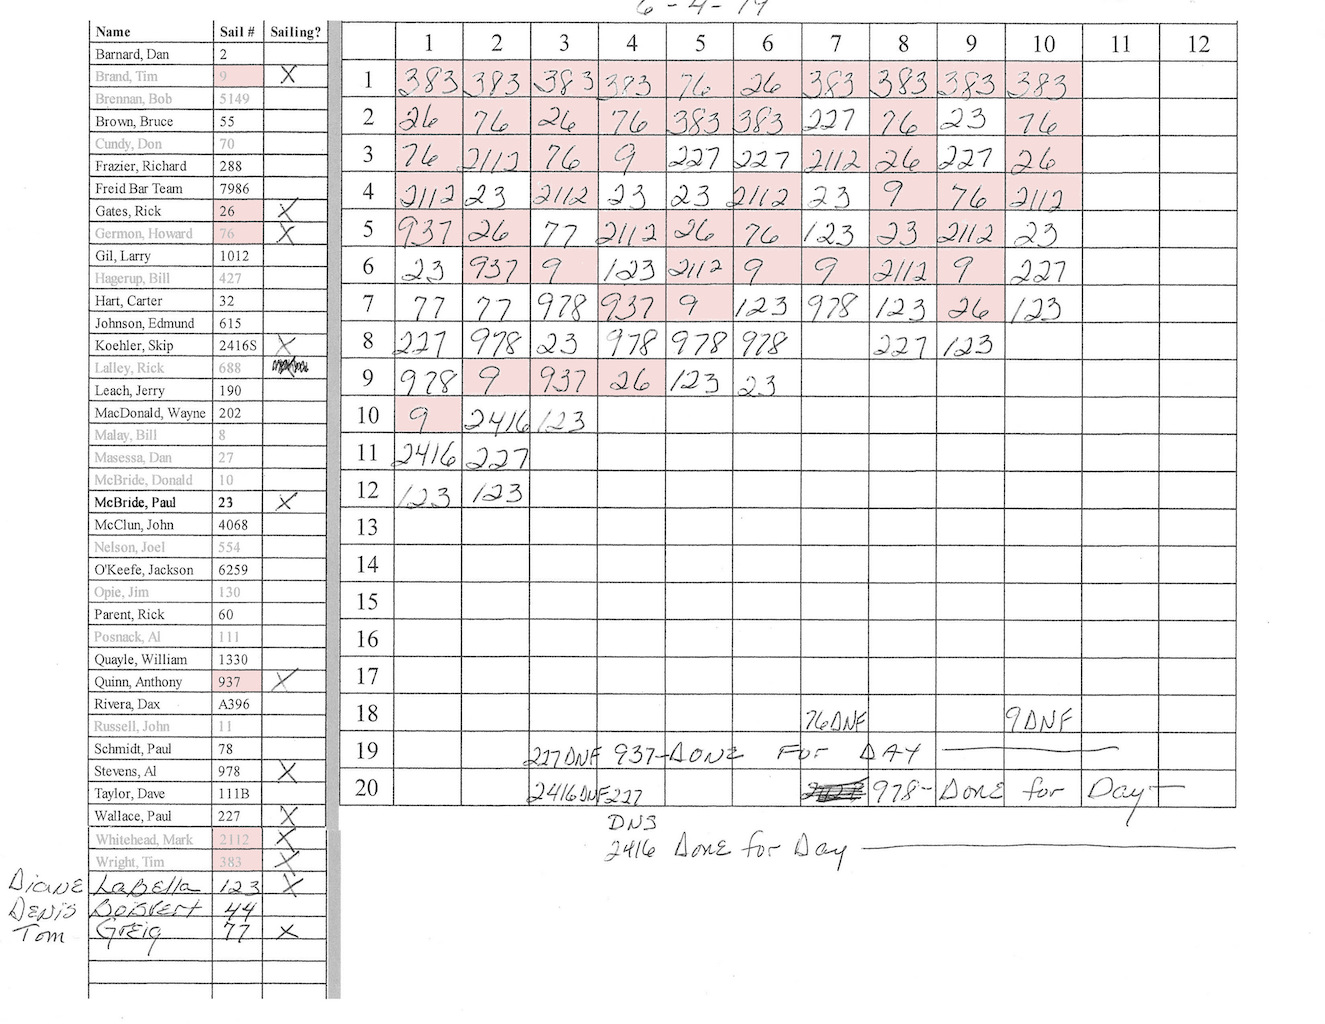 6-4-19
Name Sail # Sailing?
1 2 3 4 5 6 7 8 9 10 11 12
Barnard, Dan 2
Brand, Tim 9 X
Brennan, Bob 5149
Brown, Bruce 55
Cundy, Don 70
Frazier, Richard 288
Freid Bar Team 7986
Gates, Rick 26 X
Germon, Howard 76 X
Gil, Larry 1012
Hagerup, Bill 427
Hart, Carter 32
Johnson, Edmund 615
Koehler, Skip 2416S X
Lalley, Rick 688
Leach, Jerry 190
MacDonald, Wayne 202
Malay, Bill 8
Masessa, Dan 27
McBride, Donald 10
McBride, Paul 23 X
McClun, John 4068
Nelson, Joel 554
O'Keefe, Jackson 6259
Opie, Jim 130
Parent, Rick 60
Posnack, Al 111
Quayle, William 1330
Quinn, Anthony 937 X
Rivera, Dax A396
Russell, John 11
Schmidt, Paul 78
Stevens, Al 978 X
Taylor, Dave 111B
Wallace, Paul 227 X
Whitehead, Mark 2112 X
Wright, Tim 383 X
Diane LaBella 123 X
Denis Boisvert 44
Tom Greig 77 X
1 383 383 383 383 76 26 383 383 383 383
2 26 76 26 76 383 383 227 76 23 76
3 76 2112 76 9 227 227 2112 26 227 26
4 2112 23 2112 23 23 2112 23 9 76 2112
5 937 26 77 2112 26 76 123 23 2112 23
6 23 937 9 123 2112 9 9 2112 9 227
7 77 77 978 937 9 123 978 123 26 123
8 227 978 23 978 978 978 227 123
9 978 9 937 26 123 23
10 9 2416 123
11 2416 227
12 123 123
13
14
15
16
17
18 76 DNF 9 DNF
19 227 DNF 937-DONE FOR DAY
20 2416 DNF 227 978- Done for Day
DNS
2416 Done for Day